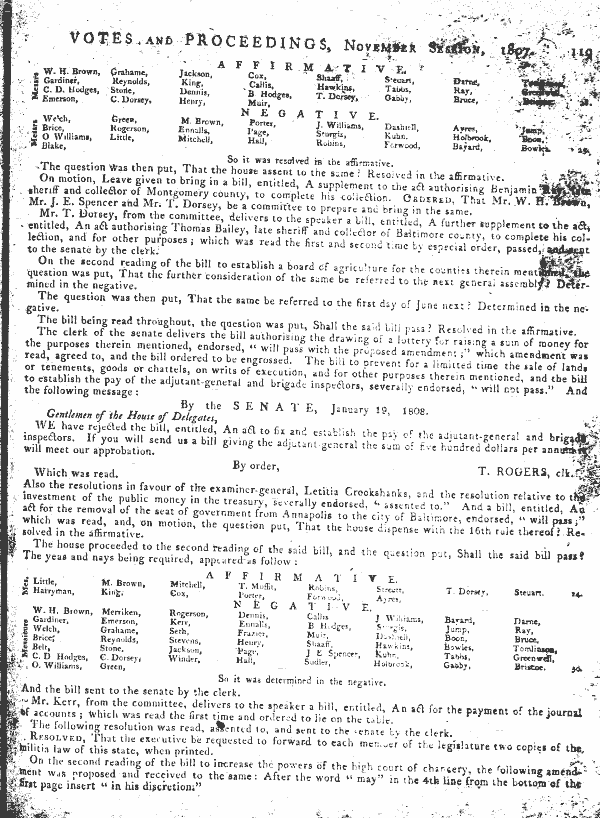 VOTES AND PROCEEDINGS, NOVEMBER SESSION, 1807. 119
AFFIRMATIVE.
Messrs W. H. Brown, Grahame, Jackson, Cox, Shaaff, Steuart, Dame,
Gardiner, Reynolds, King, Callis, Hawkins, Tabbs, Ray,
C. D. Hodges, Stone, Dennis, B Hodges, T. Dorsey, Gabby, Bruce,
Emerson, C. Dorsey, Henry, Muir,
NEGATIVE.
Messrs Welch, Green, M. Brown, Porter, J. Williams, Dashiell, Ayres, Jump,
Brice, Rogerson, Ennalls, Page, Sturgis, Kuhn, Holbrook, Boon,
O Williams, Little, Mitchell, Hall, Robins, Forwood, Bayard, Bowles, 25
Blake,
So it was resolved in the affirmative.
The question was then put, That the house assent to the same? Resolved in the affirmative.
On motion, Leave given to bring in a bill, entitled, A supplement to the act authorising Benjamin Ray,
sheriff and collector of Montgomery county, to complete his collection. ORDERED, That Mr. W. H. Brown,
Mr. J. E. Spencer and Mr. T. Dorsey, be a committee to prepare and bring in the same.
Mr. T. Dorsey, from the committee, delivers to the speaker a bill, entitled, A further supplement to the act,
entitled, An act authorising Thomas Bailey, late sheriff and collector of Baltimore county, to complete his col-
lection, and for other purposes; which was read the first and second time by especial order, passed, and sent
to the senate by the clerk.
On the second reading of the bill to establish a board of agriculture for the counties therein mentioned, the
question was put, That the further consideration of the same be referred to the next general assembly? Deter-
mined in the negative.
The question was then put, That the same be referred to the first day of June next? Determined in the ne-
gative.
The bill being read throughout, the question was put, Shall the said bill pass? Resolved in the affirmative.
The clerk of the senate delivers the bill authorising the drawing of a lottery for raising a sum of money for
the purposes therein mentioned, endorsed, "will pass with the proposed amendment;" which amendment was
read, agreed to, and the bill ordered to be engrossed. The bill to prevent for a limitted time the sale of lands
or tenements, goods or chattels, on writs of execution, and for other purposes therein mentioned, and the bill
to establish the pay of the adjutant-general and brigade inspectors, severally endorsed, "will not pass." And
the following message:
By the SENATE, January 19, 1808.
Gentlemen of the House of Delegates,
WE have rejected the bill, entitled, An act to fix and establish the pay of the adjutant-general and brigade
inspectors. If you will send us a bill giving the adjutant-general the sum of five hundred dollars per annum it
will meet our approbation.
By order, T. ROGERS, clk.
Which was read.
Also the resolutions in favour of the examiner-general, Letitia Crookshanks, and the resolution relative to the
investment of the public money in the treasury, severally endorsed, "assented to." And a bill, entitled, An
act for the removal of the seat of government from Annapolis to the city of Baltimore, endorsed, "will pass;"
which was read, and, on motion, the question put, That the house dispense with the 16th rule thereof? Re-
solved in the affirmative.
The house proceeded to the second reading of the said bill, and the question put, Shall the said bill pass?
The yeas and nays being required, appeared as follow:
AFFIRMATIVE.
Mes. Little, M. Brown, Mitchell, T. Moffit, Robins, Streett, T. Dorsey, Steuart. 14.
Harryman, King, Cox, Porter, Forwood, Ayres,
NEGATIVE.
Messieurs W. H. Brown, Merriken, Rogerson, Dennis, Callis J Williams, Bayard, Dame,
Gardiner, Emerson, Kerr, Ennalls, B Hodges, Sturgis, Jump, Ray,
Welch, Grahame, Seth, Frazier, Muir, Dashiell, Boon, Bruce,
Brice, Reynolds, Stevens, Henry, Shaaff, Hawkins, Bowles, Tomlinson,
Belt, Stone, Jackson, Page, J E Spencer, Kuhn, Tabbs, Greenwell,
C. D Hodges, C. Dorsey, Winder, Hall, Sudler, Holbrook, Gabby, Briscoe. 50.
O. Williams, Green,
So it was determined in the negative.
And the bill sent to the senate by the clerk.
Mr. Kerr, from the committee, delivers to the speaker a bill, entitled, An act for the payment of the journal
of accounts; which was read the first time and ordered to lie on the table.
The following resolution was read, assented to, and sent to the senate by the clerk.
RESOLVED, That the executive be requested to forward to each member of the legislature two copies of the
militia law of this state, when printed.
On the second reading of the bill to increase the powers of the high court of chancery, the following amend-
ment was proposed and received to the same: After the word "may" in the 4th line from the bottom of the
first page insert "in his discretion."